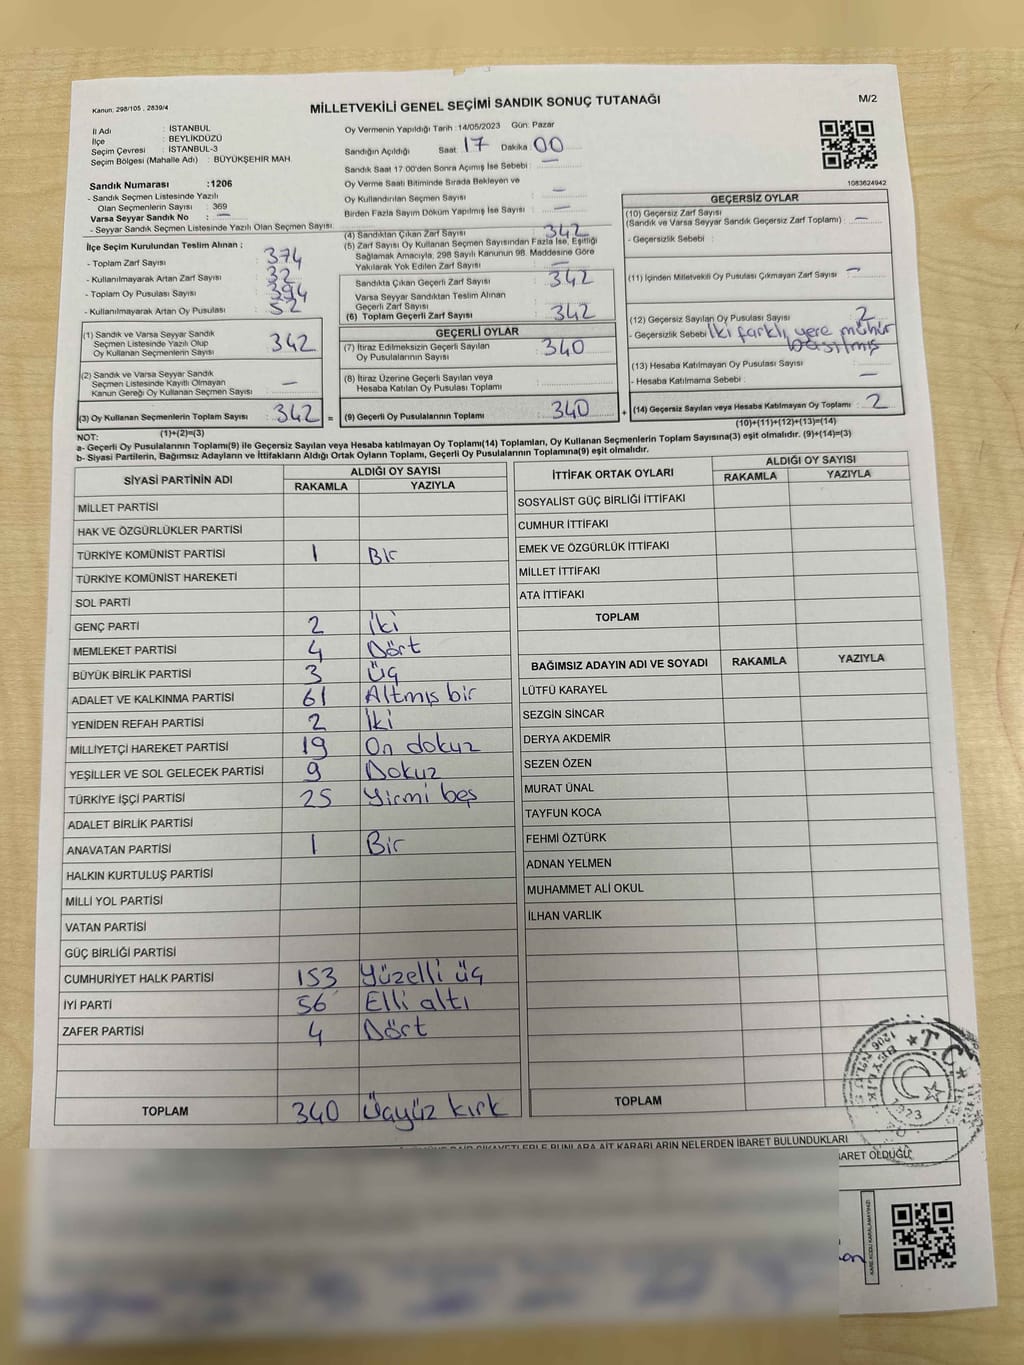 Kanun: 298/105 , 2839/4
MİLLETVEKİLİ GENEL SEÇİMİ SANDIK SONUÇ TUTANAĞI
M/2
İl Adı : İSTANBUL
İlçe : BEYLİKDÜZÜ
Seçim Çevresi : İSTANBUL-3
Seçim Bölgesi (Mahalle Adı) : BÜYÜKŞEHİR MAH.
Sandık Numarası :1206
- Sandık Seçmen Listesinde Yazılı
Olan Seçmenlerin Sayısı : 369
Varsa Seyyar Sandık No : —
- Seyyar Sandık Seçmen Listesinde Yazılı Olan Seçmen Sayısı:
İlçe Seçim Kurulundan Teslim Alınan :
- Toplam Zarf Sayısı : 374
- Kullanılmayarak Artan Zarf Sayısı : 32
- Toplam Oy Pusulası Sayısı : 394
- Kullanılmayarak Artan Oy Pusulası : 52
(1) Sandık ve Varsa Seyyar Sandık
Seçmen Listesinde Yazılı Olup
Oy Kullanan Seçmenlerin Sayısı : 342
(2) Sandık ve Varsa Seyyar Sandık
Seçmen Listesinde Kayıtlı Olmayan
Kanun Gereği Oy Kullanan Seçmen Sayısı : —
(3) Oy Kullanan Seçmenlerin Toplam Sayısı : 342 =
(1)+(2)=(3)
Oy Vermenin Yapıldığı Tarih :14/05/2023 Gün: Pazar
Sandığın Açıldığı Saat: 17 Dakika: 00
Sandık Saat 17:00'den Sonra Açımış İse Sebebi : —
Oy Verme Saati Bitiminde Sırada Bekleyen ve
Oy Kullandırılan Seçmen Sayısı : —
Birden Fazla Sayım Döküm Yapılmış İse Sayısı : —
(4) Sandıktan Çıkan Zarf Sayısı : 342
(5) Zarf Sayısı Oy Kullanan Seçmen Sayısından Fazla İse, Eşitliği
Sağlamak Amacıyla, 298 Sayılı Kanunun 98. Maddesine Göre
Yakılarak Yok Edilen Zarf Sayısı : —
Sandıkta Çıkan Geçerli Zarf Sayısı : 342
Varsa Seyyar Sandıktan Teslim Alınan
Geçerli Zarf Sayısı :
(6) Toplam Geçerli Zarf Sayısı : 342
GEÇERLİ OYLAR
(7) İtiraz Edilmeksizin Geçerli Sayılan
Oy Pusulalarının Sayısı : 340
(8) İtiraz Üzerine Geçerli Sayılan veya
Hesaba Katılan Oy Pusulası Toplamı :
(9) Geçerli Oy Pusulalarının Toplamı : 340 +
1083624942
GEÇERSİZ OYLAR
(10) Geçersiz Zarf Sayısı
(Sandık ve Varsa Seyyar Sandık Geçersiz Zarf Toplamı) : —
- Geçersizlik Sebebi :
(11) İçinden Milletvekili Oy Pusulası Çıkmayan Zarf Sayısı : —
(12) Geçersiz Sayılan Oy Pusulası Sayısı : 2
- Geçersizlik Sebebi : İki farklı yere mühür
basılmış
(13) Hesaba Katılmayan Oy Pusulası Sayısı :
- Hesaba Katılmama Sebebi : —
(14) Geçersiz Sayılan veya Hesaba Katılmayan Oy Toplamı : 2
(10)+(11)+(12)+(13)=(14)
NOT:
a- Geçerli Oy Pusulalarının Toplamı(9) ile Geçersiz Sayılan veya Hesaba katılmayan Oy Toplamı(14) Toplamları, Oy Kullanan Seçmenlerin Toplam Sayısına(3) eşit olmalıdır. (9)+(14)=(3)
b- Siyasi Partilerin, Bağımsız Adayların ve İttifakların Aldığı Ortak Oyların Toplamı, Geçerli Oy Pusulalarının Toplamına(9) eşit olmalıdır.
SİYASİ PARTİNİN ADI ALDIĞI OY SAYISI
RAKAMLA YAZIYLA
MİLLET PARTİSİ
HAK VE ÖZGÜRLÜKLER PARTİSİ
TÜRKİYE KOMÜNİST PARTİSİ 1 Bir
TÜRKİYE KOMÜNİST HAREKETİ
SOL PARTİ
GENÇ PARTİ 2 İki
MEMLEKET PARTİSİ 4 Dört
BÜYÜK BİRLİK PARTİSİ 3 Üç
ADALET VE KALKINMA PARTİSİ 61 Altmış bir
YENİDEN REFAH PARTİSİ 2 İki
MİLLİYETÇİ HAREKET PARTİSİ 19 On dokuz
YEŞİLLER VE SOL GELECEK PARTİSİ 9 Dokuz
TÜRKİYE İŞÇİ PARTİSİ 25 Yirmi beş
ADALET BİRLİK PARTİSİ
ANAVATAN PARTİSİ 1 Bir
HALKIN KURTULUŞ PARTİSİ
MİLLİ YOL PARTİSİ
VATAN PARTİSİ
GÜÇ BİRLİĞİ PARTİSİ
CUMHURİYET HALK PARTİSİ 153 Yüzelli üç
İYİ PARTİ 56 Elli altı
ZAFER PARTİSİ 4 Dört
TOPLAM 340 Üçyüz kırk
İTTİFAK ORTAK OYLARI ALDIĞI OY SAYISI
RAKAMLA YAZIYLA
SOSYALİST GÜÇ BİRLİĞİ İTTİFAKI
CUMHUR İTTİFAKI
EMEK VE ÖZGÜRLÜK İTTİFAKI
MİLLET İTTİFAKI
ATA İTTİFAKI
TOPLAM
BAĞIMSIZ ADAYIN ADI VE SOYADI RAKAMLA YAZIYLA
LÜTFÜ KARAYEL
SEZGİN SİNCAR
DERYA AKDEMİR
SEZEN ÖZEN
MURAT ÜNAL
TAYFUN KOCA
FEHMİ ÖZTÜRK
ADNAN YELMEN
MUHAMMET ALİ OKUL
İLHAN VARLIK
TOPLAM
T.C.
1206 NOLU
BEYLİK
1923
KARARLARIN NELERDEN İBARET BULUNDUKLARI
BARET OLDUĞU;